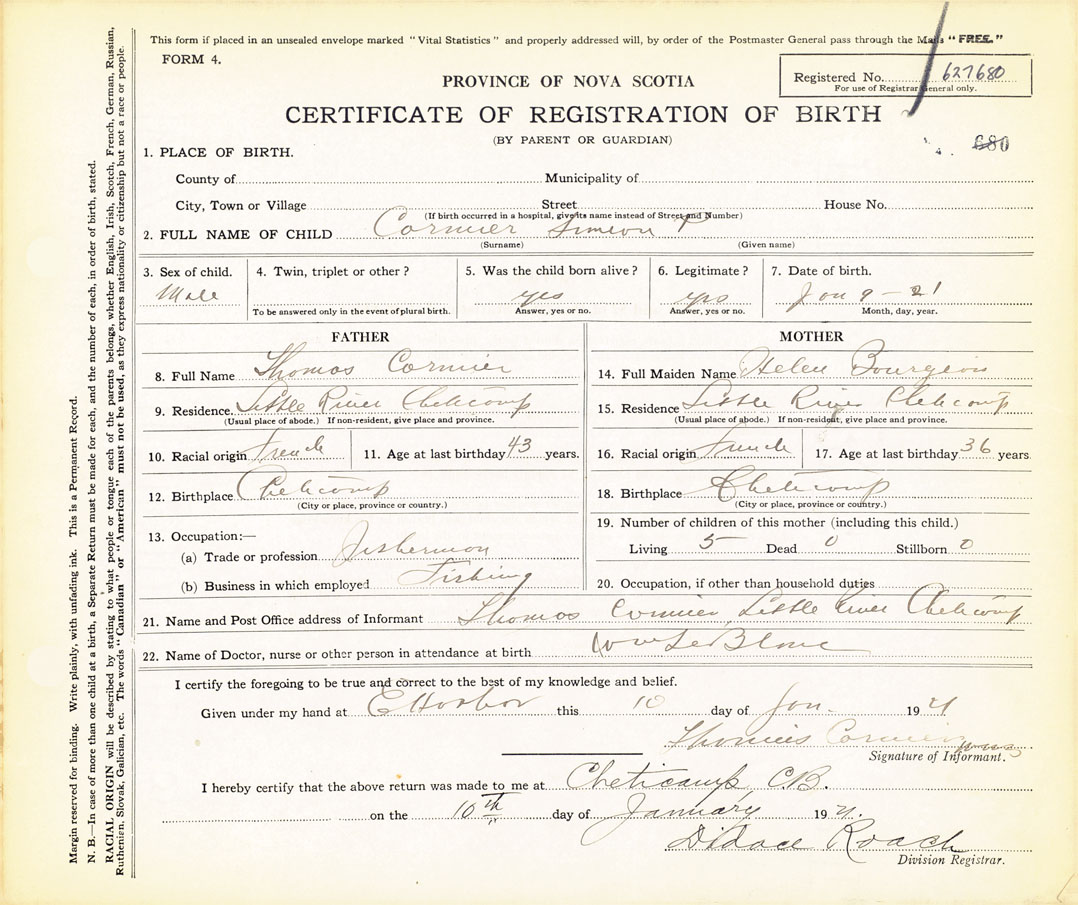 This form if placed in an unsealed envelope marked "Vital Statistics" and properly addressed will, by order of the Postmaster General pass through the Mails "FREE."
FORM 4.
PROVINCE OF NOVA SCOTIA
Registered No. 627680
For use of Registrar General only.
CERTIFICATE OF REGISTRATION OF BIRTH
(BY PARENT OR GUARDIAN)
680
1. PLACE OF BIRTH.
County of Municipality of
City, Town or Village Street House No.
(If birth occurred in a hospital, give its name instead of Street and Number)
2. FULL NAME OF CHILD Cormier Simeon P
(Surname) (Given name)
3. Sex of child. 4. Twin, triplet or other? 5. Was the child born alive? 6. Legitimate? 7. Date of birth.
Male yes yes Jan 9 - 21
To be answered only in the event of plural birth. Answer, yes or no. Answer, yes or no. Month, day, year.
FATHER
8. Full Name Thomas Cormier
9. Residence Little River Cheticamp
(Usual place of abode.) If non-resident, give place and province.
10. Racial origin French 11. Age at last birthday 43 years.
12. Birthplace Cheticamp
(City or place, province or country.)
13. Occupation:—
(a) Trade or profession Fisherman
(b) Business in which employed Fishing
MOTHER
14. Full Maiden Name Helen Bourgeois
15. Residence Little River Cheticamp
(Usual place of abode.) If non-resident, give place and province.
16. Racial origin French 17. Age at last birthday 36 years
18. Birthplace Cheticamp
(City or place, province or country.)
19. Number of children of this mother (including this child.)
Living 5 Dead 0 Stillborn 0
20. Occupation, if other than household duties
21. Name and Post Office address of Informant Thomas Cormier, Little River Cheticamp
22. Name of Doctor, nurse or other person in attendance at birth LeBlanc
I certify the foregoing to be true and correct to the best of my knowledge and belief.
Given under my hand at E Harbor this 10 day of Jan. 1921
Thomas Cormier
Signature of Informant.
I hereby certify that the above return was made to me at Cheticamp, C.B.
on the 10th day of January 1921.
Didace Roach
Division Registrar.
Margin reserved for binding. Write plainly, with unfading ink. This is a Permanent Record.
N. B.—In case of more than one child at a birth, a Separate Return must be made for each, and the number of each, in order of birth, stated.
RACIAL ORIGIN will be described by stating to what people or tongue each of the parents belongs, whether English, Irish, Scotch, French, German, Russian,
Ruthenian, Slovak, Galician, etc. The words "Canadian" or "American" must not be used, as they express nationality or citizenship but not a race or people.